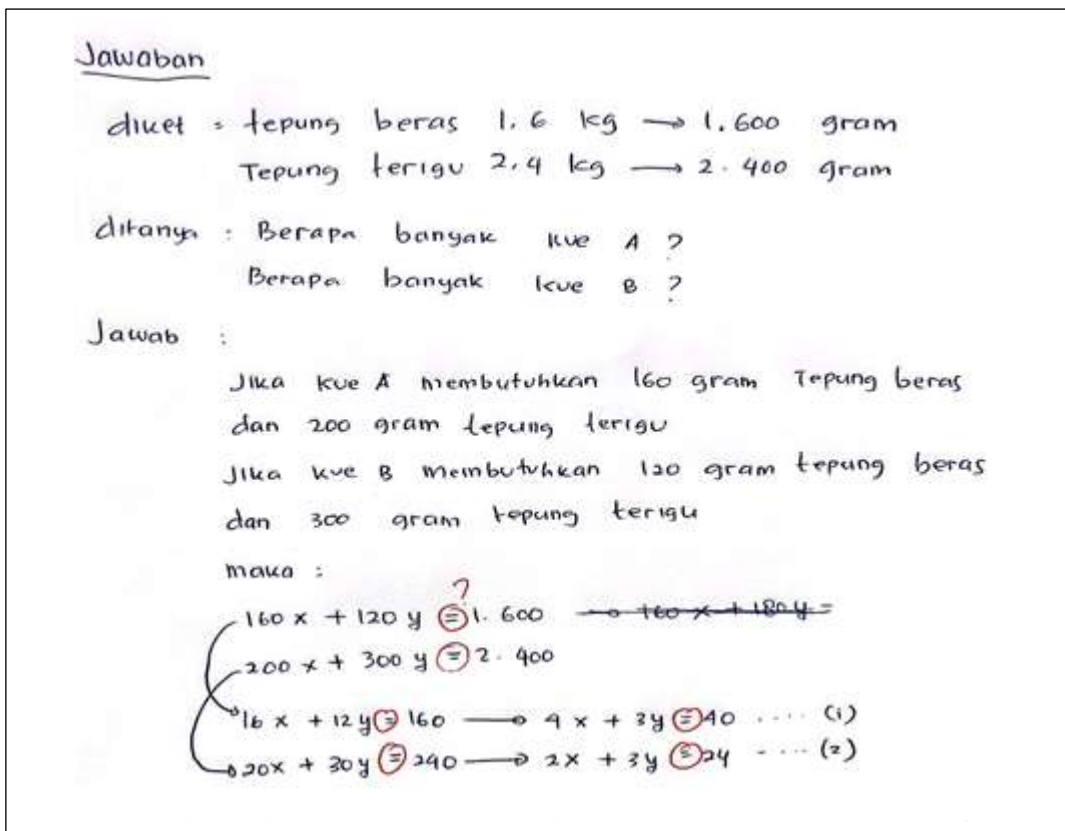 Jawaban
diket : tepung beras 1.6 kg → 1.600 gram
Tepung terigu 2.4 kg → 2.400 gram
ditanya : Berapa banyak kue A ?
Berapa banyak kue B ?
Jawab :
Jika kue A membutuhkan 160 gram Tepung beras
dan 200 gram tepung terigu
Jika kue B membutuhkan 120 gram tepung beras
dan 300 gram tepung terigu
maka :
?
160 x + 120 y = 1.600 → 160 x + 180 y =
200 x + 300 y = 2.400
16 x + 12 y = 160 → 4 x + 3 y = 40 .... (1)
20x + 30y = 240 → 2x + 3y = 24 .... (2)